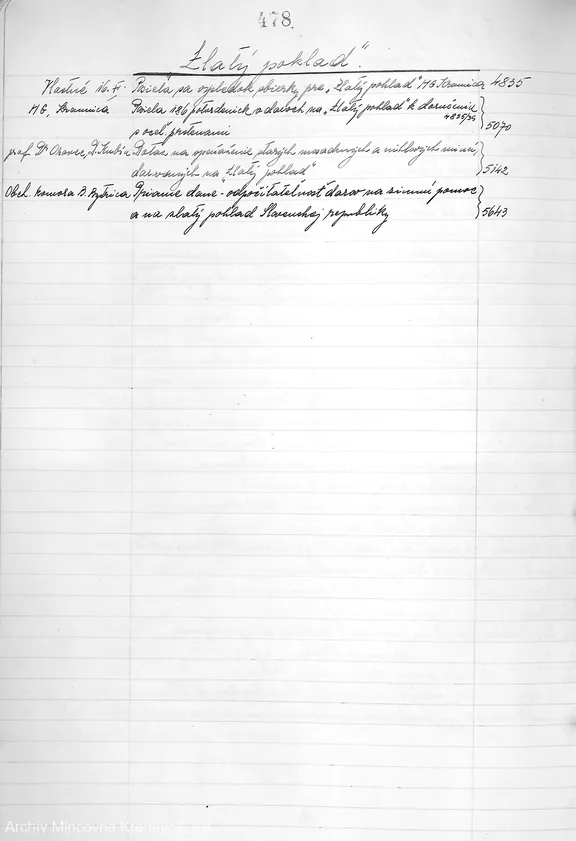 478.
„Zlatý poklad“.
Vlastné 16. Posiela sa výsledok zbierky pre „Zlatý poklad“ HG. Kremnica 4835
HG, Kremnica Posiela 186 potvrdeniek o daroch na „Zlatý poklad“ k doručeniu
4835/39
s ocel. prsteňami 5070
prof. Dr Dotaz na starých a niklových mincí,
darovaných na „Zlatý poklad“ 5142
Obch. komora B. Bystrica Priame dane - odpočítateľnosť darov na zimnú pomoc
a na zlatý poklad Slovenskej republiky 5643
Archív Mincovne Kremnica